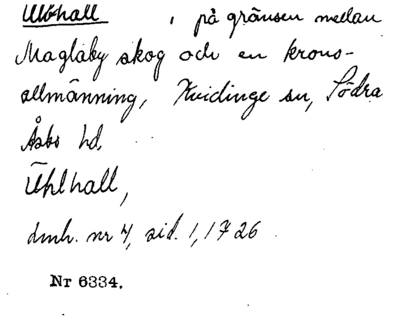 Ulvhall, på gränsen mellan
Maglaby skog och en krono-
allmänning, Kvidinge sn, Södra
Åsbo hd.
Ühlhall,
dmh. nr 7, sid. 1, 1726
Nr 6334.